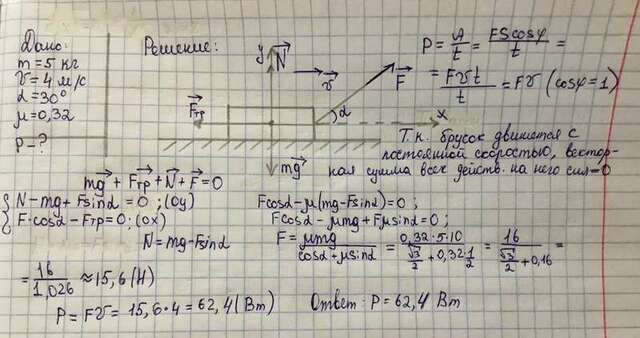 Дано:
m = 5 кг
v = 4 м/с
α = 30°
μ = 0,32
P - ?
Решение:
y N⃗
v⃗
F⃗
F⃗тр
α
x
mg⃗
P = A/t = FScosφ/t =
= Fvt/t = Fv (cosφ = 1)
Т.к. брусок движется с
постоянной скоростью, вектор-
ная сумма всех действ. на него сил = 0
mg⃗ + F⃗тр + N⃗ + F⃗ = 0
{ N - mg + Fsinα = 0 ; (оу)
F·cosα - Fтр = 0 ; (ох)
N = mg - Fsinα
Fcosα - μ(mg - Fsinα) = 0 ;
Fcosα - μmg + Fμsinα = 0 ;
F = μmg/(cosα + μsinα) = 0,32·5·10/(√3/2 + 0,32·1/2) = 16/(√3/2 + 0,16) =
= 16/1,026 ≈ 15,6 (Н)
P = Fv = 15,6·4 = 62,4 (Вт)
Ответ: P = 62,4 Вт